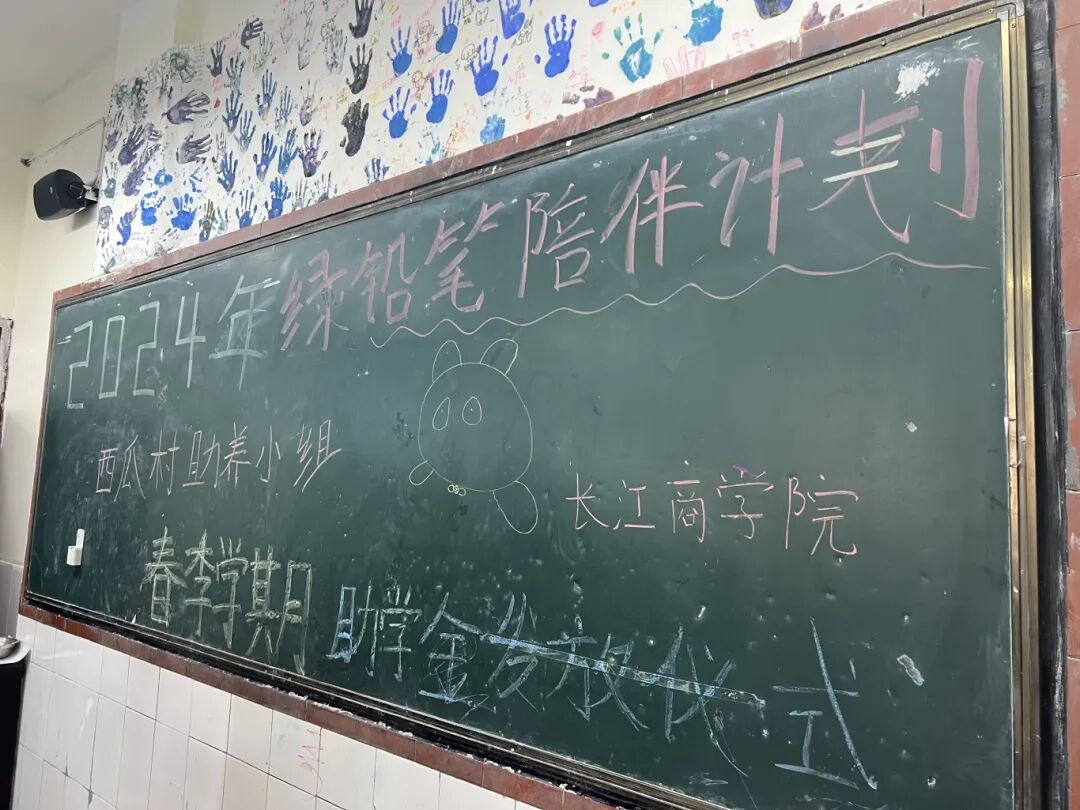 2024年绿铅笔陪伴计划
西瓜村助养小组
长江商学院
春季学期助学金发放仪式